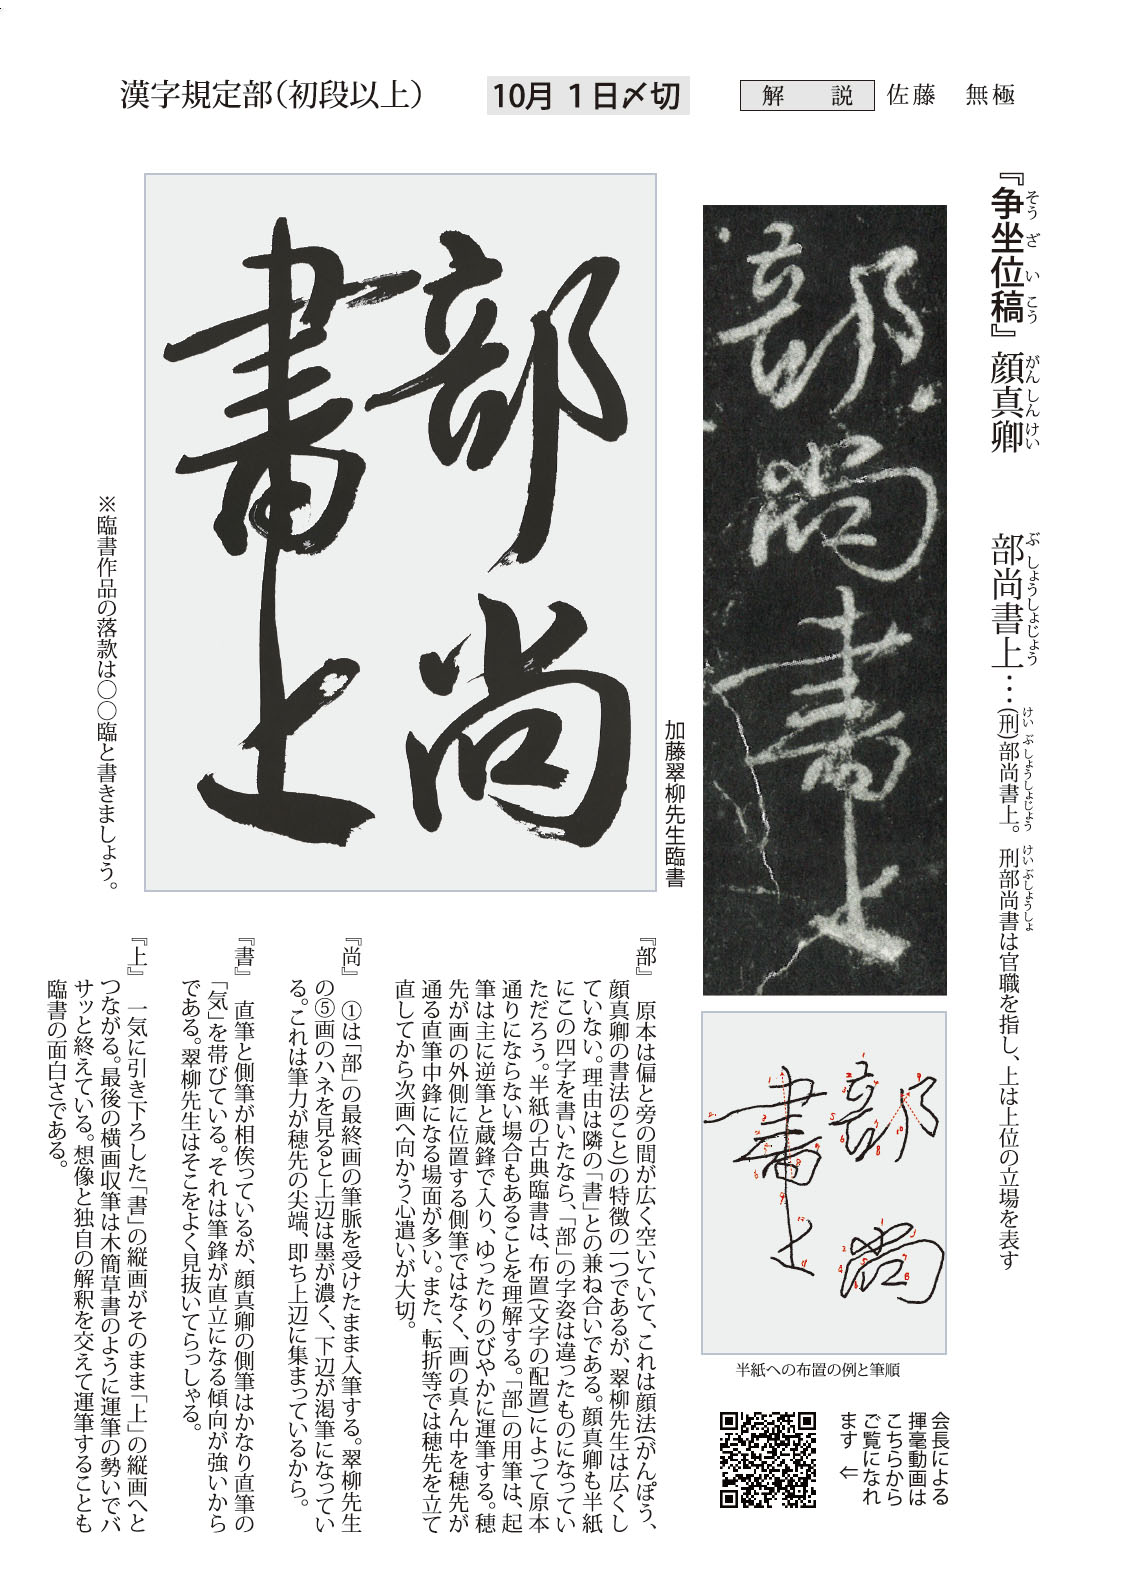 漢字規定部（初段以上）
10月１日〆切
解　説
佐藤　無極
『争坐位稿』 顔真卿
そうざいこう がんしんけい
部尚書上…（刑）部尚書上。刑部尚書は官職を指し、上は上位の立場を表す
ぶしょうしょじょう けいぶしょうしょじょう けいぶしょうしょ
部尚書上
部尚
書上
加藤翠柳先生臨書
※臨書作品の落款は〇〇臨と書きましょう。
部尚
書上
半紙への布置の例と筆順
会長による
揮毫動画は
こちらから
ご覧になれ
ます ⇐
『部』　原本は偏と旁の間が広く空いていて、これは顔法（がんぽう、
顔真卿の書法のこと）の特徴の一つであるが、翠柳先生は広くし
ていない。理由は隣の「書」との兼ね合いである。顔真卿も半紙
にこの四字を書いたなら、「部」の字姿は違ったものになってい
ただろう。半紙の古典臨書は、布置（文字の配置）によって原本
通りにならない場合もあることを理解する。「部」の用筆は、起
筆は主に逆筆と蔵鋒で入り、ゆったりのびやかに運筆する。穂
先が画の外側に位置する側筆ではなく、画の真ん中を穂先が
通る直筆中鋒になる場面が多い。また、転折等では穂先を立て
直してから次画へ向かう心遣いが大切。
『尚』　①は「部」の最終画の筆脈を受けたまま入筆する。翠柳先生
の⑤画のハネを見ると上辺は墨が濃く、下辺が渇筆になってい
る。これは筆力が穂先の尖端、即ち上辺に集まっているから。
『書』　直筆と側筆が相俟っているが、顔真卿の側筆はかなり直筆の
「気」を帯びている。それは筆鋒が直立になる傾向が強いから
である。翠柳先生はそこをよく見抜いてらっしゃる。
『上』　一気に引き下ろした「書」の縦画がそのまま「上」の縦画へと
つながる。最後の横画収筆は木簡草書のように運筆の勢いでバ
サッと終えている。想像と独自の解釈を交えて運筆することも
臨書の面白さである。